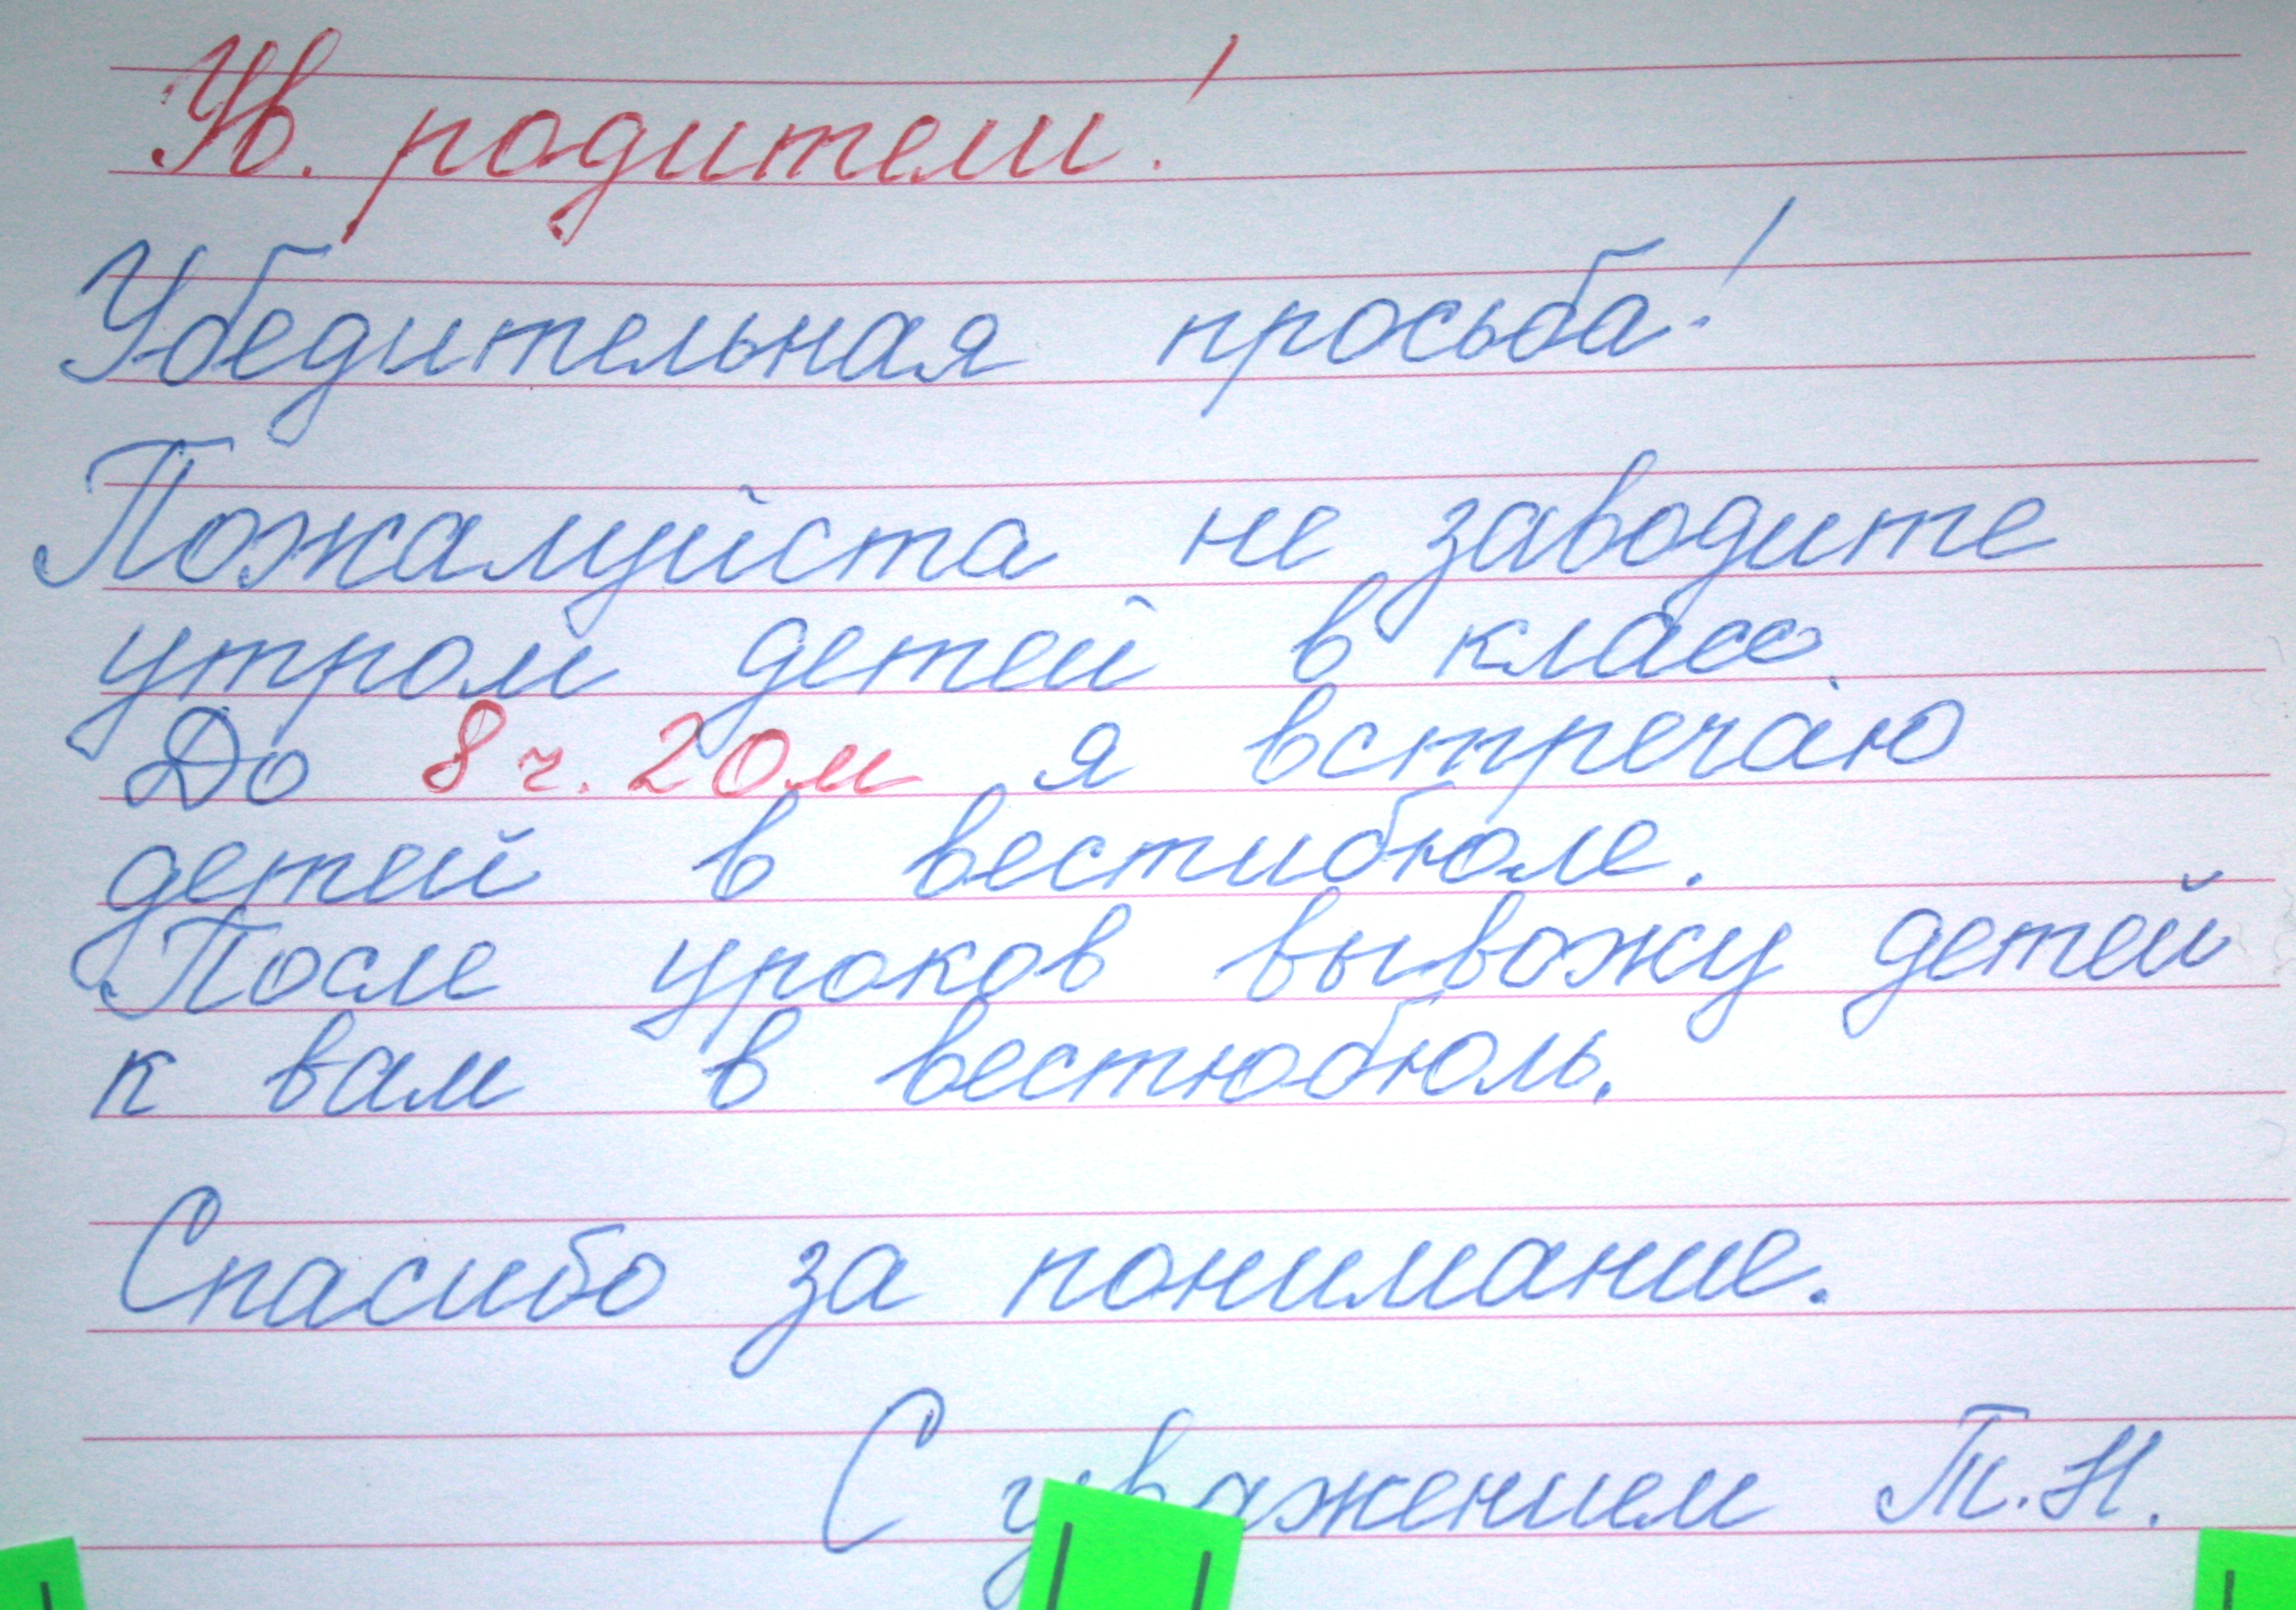 Ув. родители!
Убедительная просьба!
Пожалуйста не заводите
утром детей в класс.
До 8ч. 20м я встречаю
детей в вестибюле.
После уроков вывожу детей
к вам в вестюбюль.
Спасибо за понимание.
С уважением Т.Н.